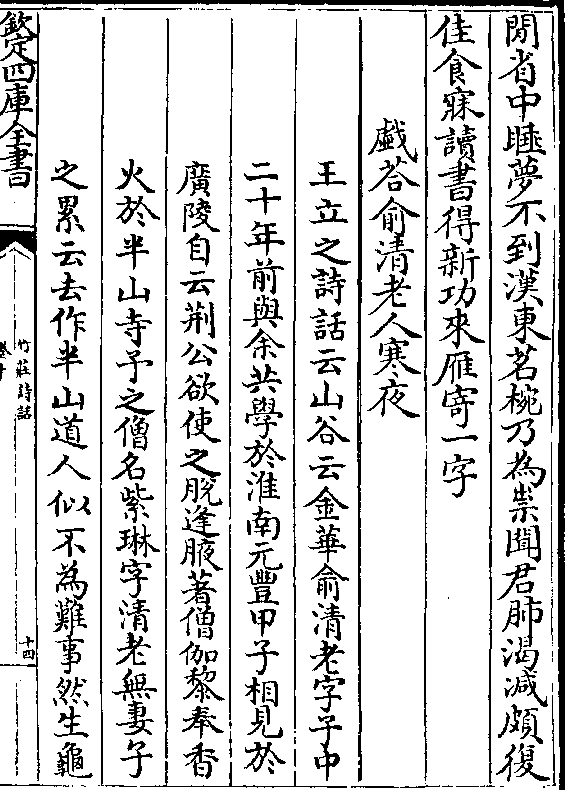 閒省中睡夢不到漢東茗椀乃為祟聞君肺渴减頗復
佳食寐讀書得新功來雁寄一字
戯荅俞清老人寒夜
王立之詩話云山谷云金華俞清老字子中
二十年前與余共學於淮南元豐甲子相見於
廣陵自云荆公欲使之脱逢腋著僧伽黎奉香
火於半山寺予之僧名紫琳字清老無妻子
之累云去作半山道人似不為難事然生龜
欽定四庫全書
竹莊詩話
卷十
十四